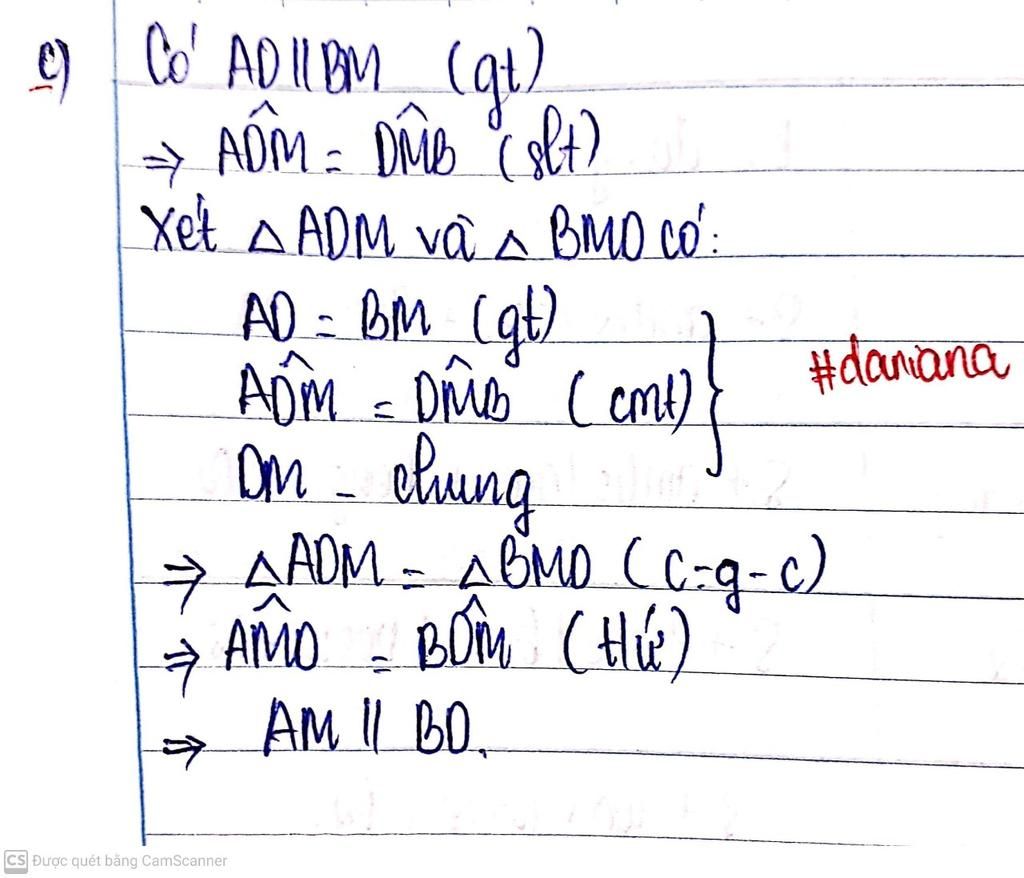 c) Có AD // BM (gt)
⇒ AD̂M = DM̂B (slt)
Xét △ ADM và △ BMD có:
AD = BM (gt)
AD̂M = DM̂B (cmt)
#daniana
DM - chung
⇒ △ADM = △BMD (c-g-c)
⇒ AM̂D = BD̂M (tứ)
⇒ AM // BD.
CS Được quét bằng CamScanner